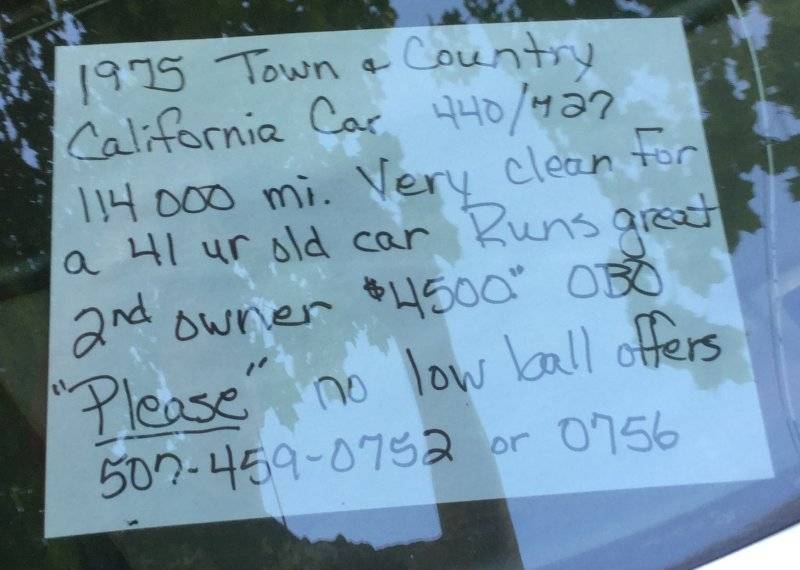 1975 Town & Country
California Car 440/727
114 000 mi. Very clean for
a 41 yr old car Runs great
2nd owner $4500" OBO
"Please" no low ball offers
507-459-0752 or 0756